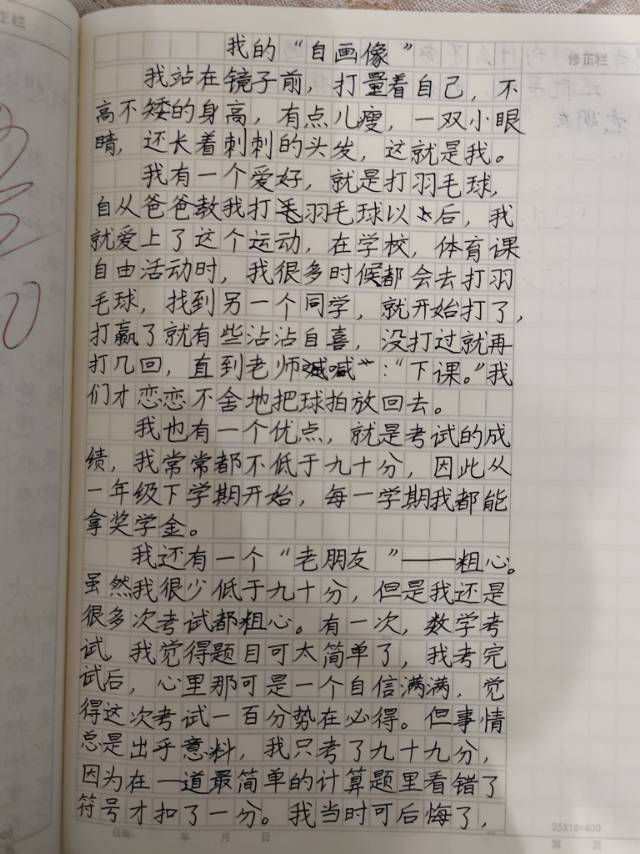 正栏
我的“自画像”
修正栏
我站在镜子前，打量着自己，不
高不矮的身高，有点儿瘦，一双小眼
睛，还长着刺刺的头发，这就是我。
我有一个爱好，就是打羽毛球，
自从爸爸教我打羽毛球以后，我
就爱上了这个运动，在学校，体育课
自由活动时，我很多时候都会去打羽
毛球，找到另一个同学，就开始打了，
打赢了就有些沾沾自喜，没打过就再
打几回，直到老师喊：“下课。”我
们才恋恋不舍地把球拍放回去。
我也有一个优点，就是考试的成
绩，我常常都不低于九十分，因此从
一年级下学期开始，每一学期我都能
拿奖学金。
我还有一个“老朋友”——粗心。
虽然我很少低于九十分，但是我还是
很多次考试都粗心。有一次，数学考
试，我觉得题目可太简单了，我考完
试后，心里那可是一个自信满满，觉
得这次考试一百分势在必得。但事情
总是出乎意料，我只考了九十九分，
因为在一道最简单的计算题里看错了
符号才扣了一分。我当时可后悔了，
日期： 年 月 日
25X16=400
页